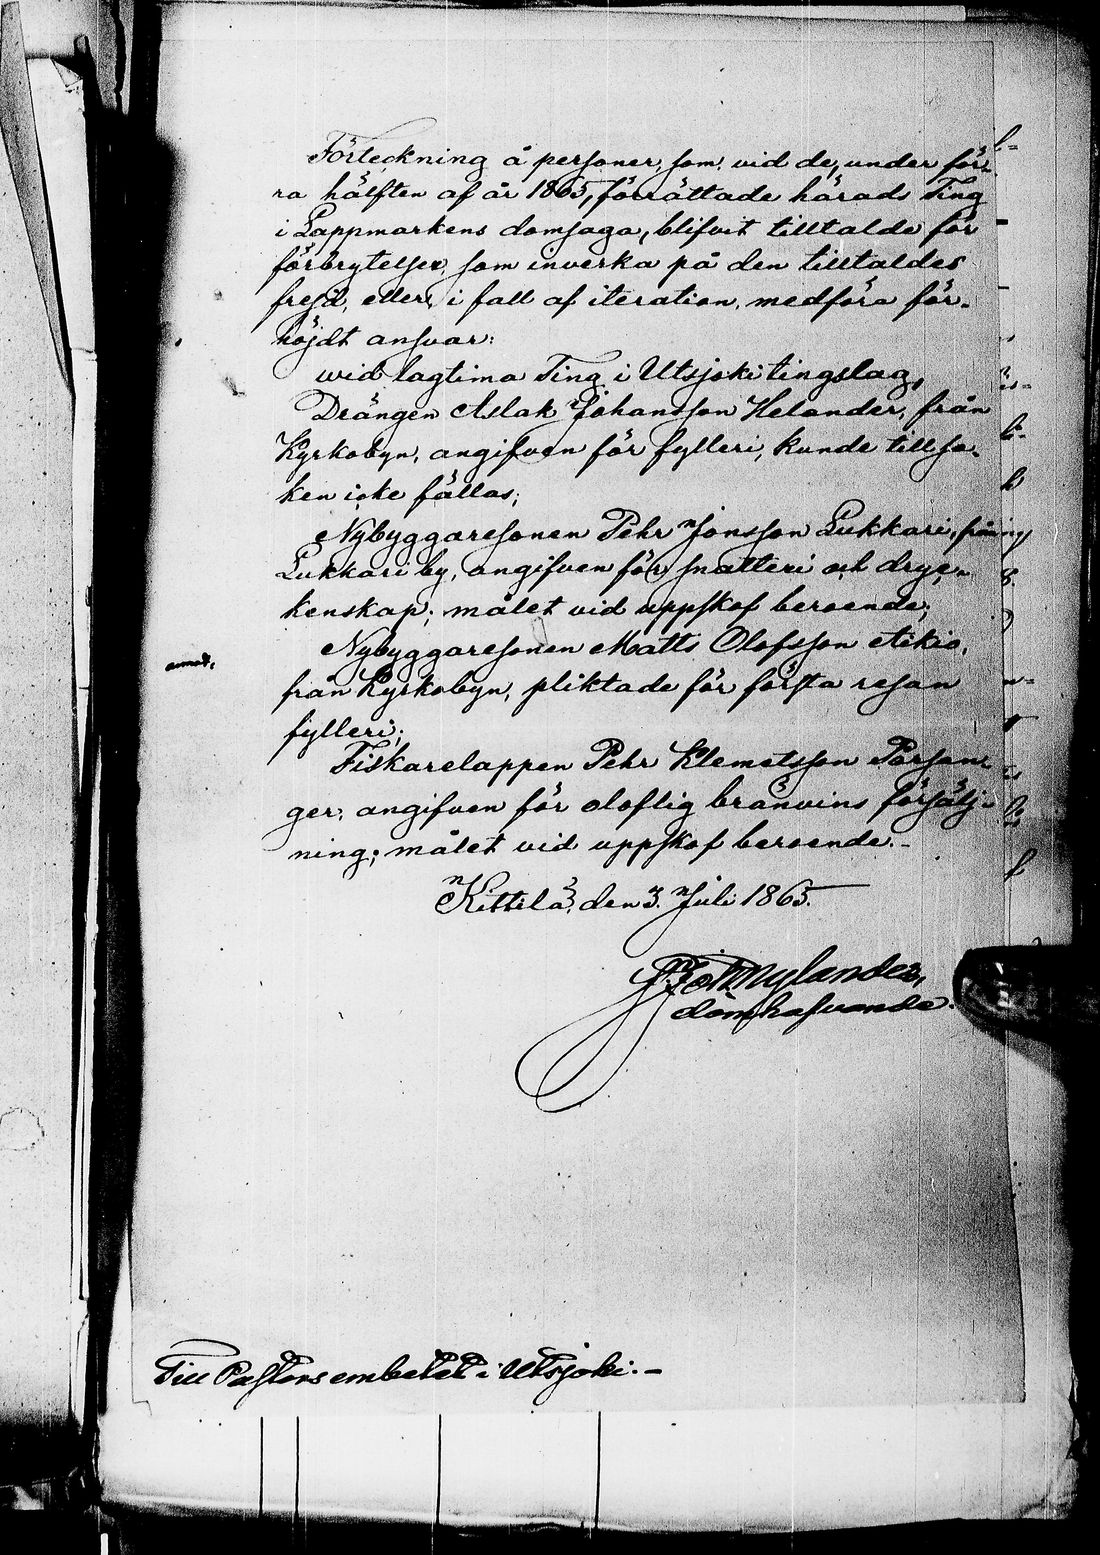 Förteckning å personer, som, vid de, under för-
ra hälften af år 1865, förrättade härads Ting
i Lappmarkens domsaga, blifvit tilltalde för
förbrytelser, som inverka på den tilltaldes
frejd, eller, i fall af iteration, medföra för-
höjdt ansvar:
wid lagtima Ting i Utsjoki tingslag,
Drängen Aslak Johansson Helander, från
Kyrkobyn, angifven för fylleri, kunde till sa-
ken icke fällas;
Nybyggaresonen Pehr Jonsson Lukkari, från
Lukkari by, angifven för snatteri och dryc-
kenskap; målet vid uppskof beroende;
Nybyggaresonen Matts Olofsson Aikio,
från Kyrkobyn, pliktade för första resan
fylleri;
Fiskarelappen Pehr Klemetsson Porsan-
ger, angifven för oloflig bränvins försälj-
ning; målet vid uppskof beroende.-
Kittilä, den 3. Juli 1865.
Nylander,
domhafvande.
Till Pastorsembetet i Utsjoki.-